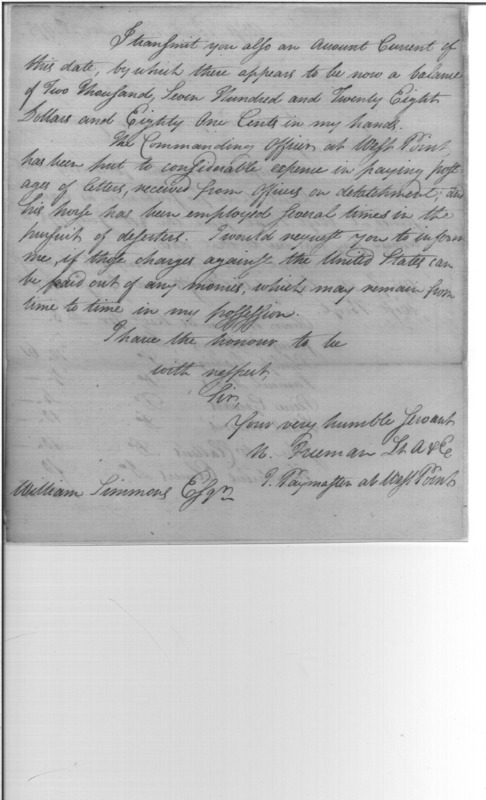 I transmit you also an Account Current of
this date, by which there appears to be now a balance
of Two Thousand, Seven Hundred and Twenty Eight
Dollars and Eighty One Cents in my hands.
The Commanding Officer at West Point
has been put to considerable expence in paying post
ages of letters, received from Officers on detatchment; and
his horse has been employed several times in the
pursuit of deserters. I would request you to inform
me if these charges against the United States can
be paid out of any monies, which may remain from
time to time in my possession.
I have the honour to be
with respect,
Sir,
Your very humble servant
N. Freeman Lt A & E
Paymaster at West Point
William Simmons Esqr